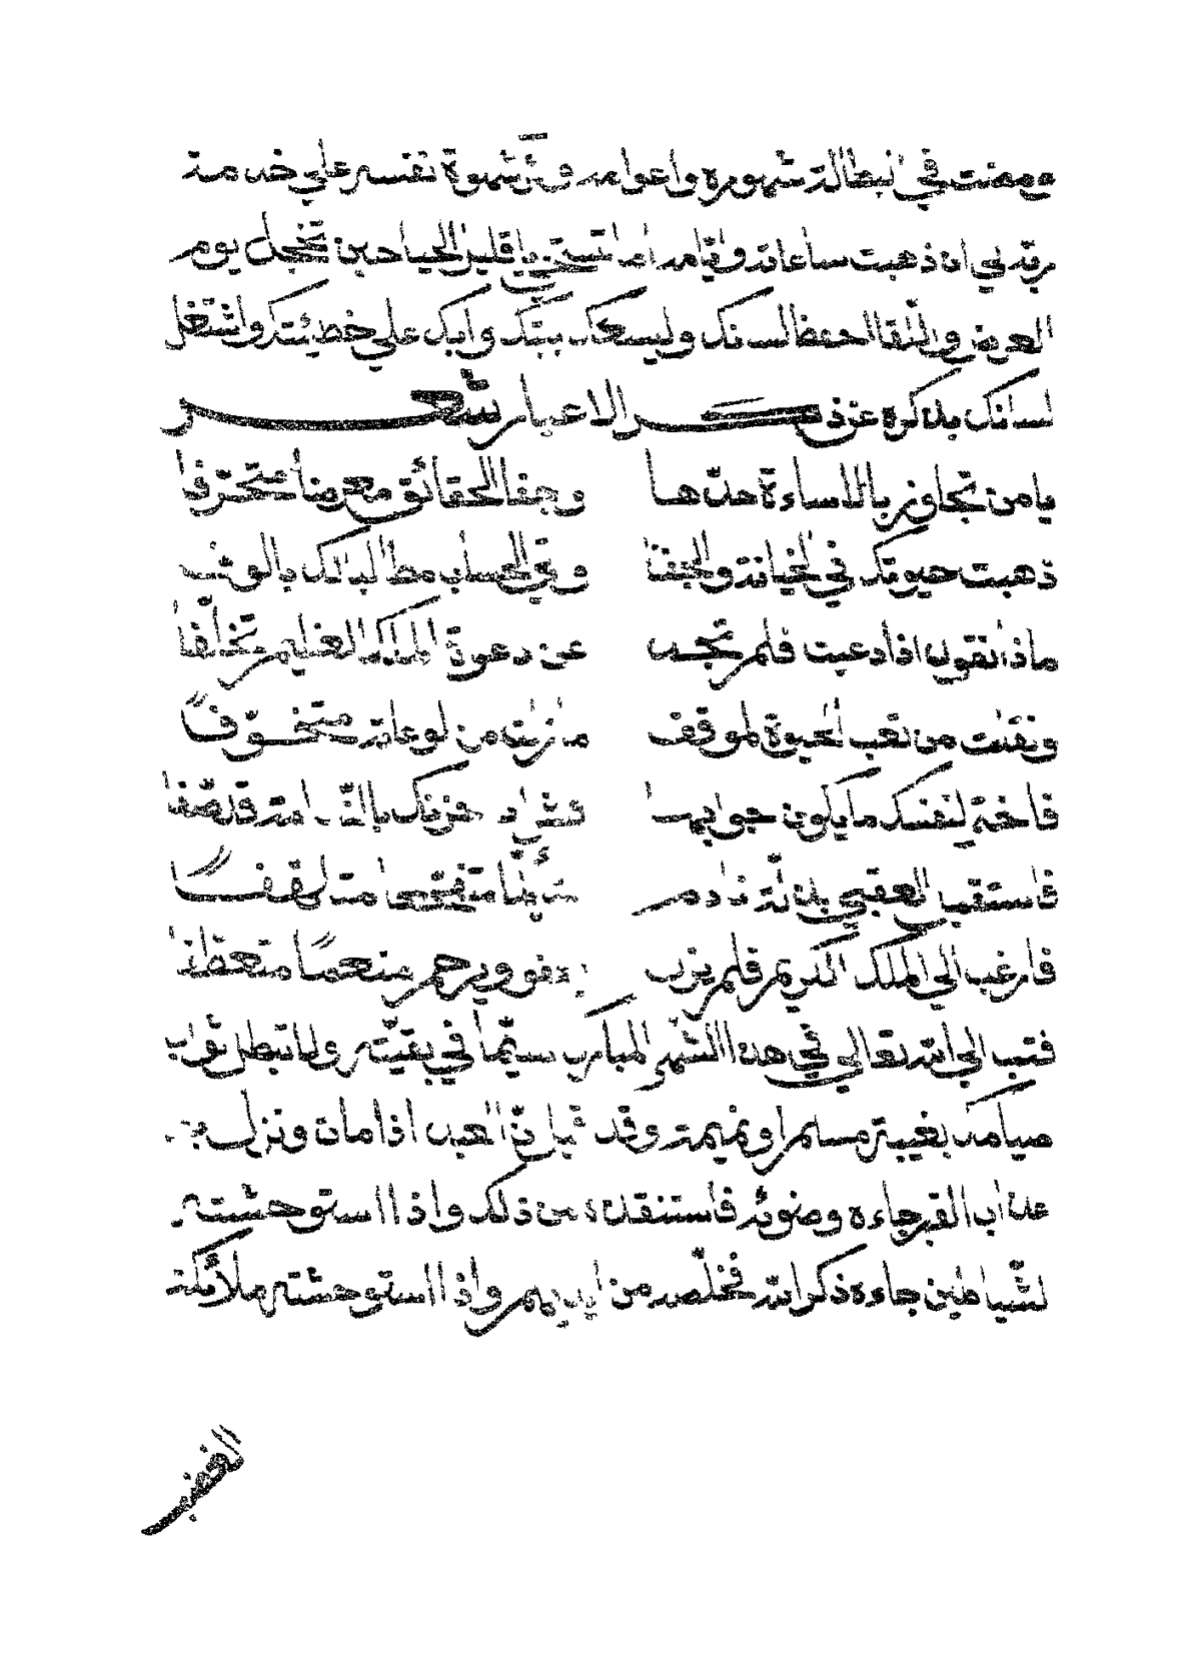 ومضت في البطالة شهوره واعوامه وآثر شهوة نفسه علي خدمة
ربه الي ان ذهبت ساعاته وايامه اما تستحي يا قليل الحيا حين تخجل يوم
العرض واللقا احفظ لسانك وليسعك بيتك وابك علي خطيئتك واشتغل
لسانك بذكره عن ذكر الاغيار شعر
يا من تجاوز بالاساءة حدّها وجفا الحقائق معرضا متحرّفا
ذهبت حيوتك في الخيانة والجفا وتري الحساب مطالبا لك بالوفا
ماذا تقول اذا دعيت فلم تجب عن دعوة الملك العظيم تخلّفا
ونقلت من تعب الحيوة لموقف ما زلت من لوعاته متخوّفًا
فاختر لنفسك ما يكون جوابها
فاستقبل العقبي بذلّة نادم متأسّفًا
فارغب الي الملك الكريم فلم يزل يعفو ويرحم منعمًا متعطفا
فتب الي الله تعالي في هذا الشهر المبارك سيّما في بقيّته ولا تبطل ثواب
صيامك بغيبة مسلم او نميمة وقد قيل انّ العبد اذا مات ونزل به
عذاب القبر جاءه وضوئه فاستنقذه من ذلك واذا استوحشته
لشّياطين جاءه ذكر الله فخلّصه من ايديهم واذا استوحشته ملائكة